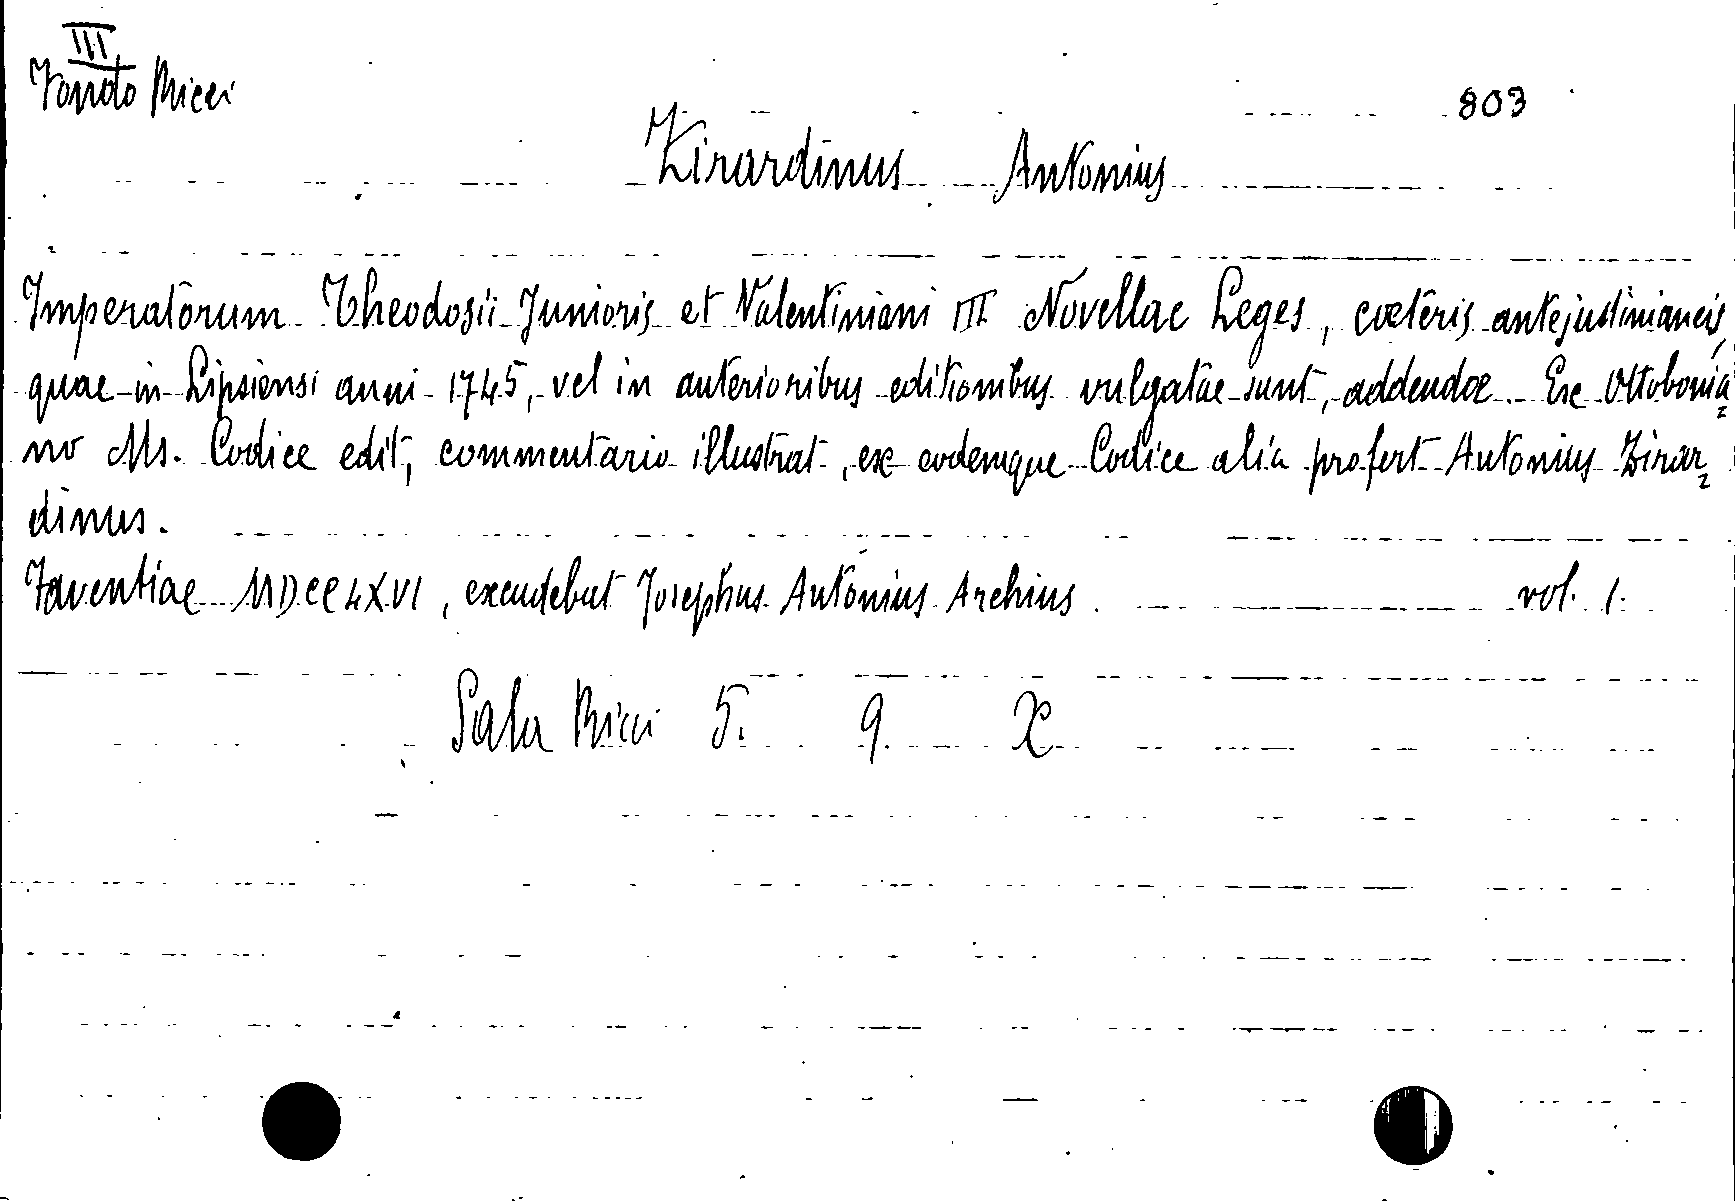 III
Fondo Ricci
803
Zirardinus Antonius
Imperatorum Theodosii Junioris et Valentiniani III Novellae Leges, cœteris antejustinianeis,
quae in Lipsiensi anni 1745, vel in anterioribus editionibus vulgatae sunt, addendœ. Ex Ottobonia=
no Ms. Codice edit, commentario illustrat, ex eodemque Codice alia profert Antonius Zirar=
dinus.
Faventiae MDCCLXVI, excudebat Josephus Antonius Archius. vol. 1.
Sala Ricci 5. 9. X